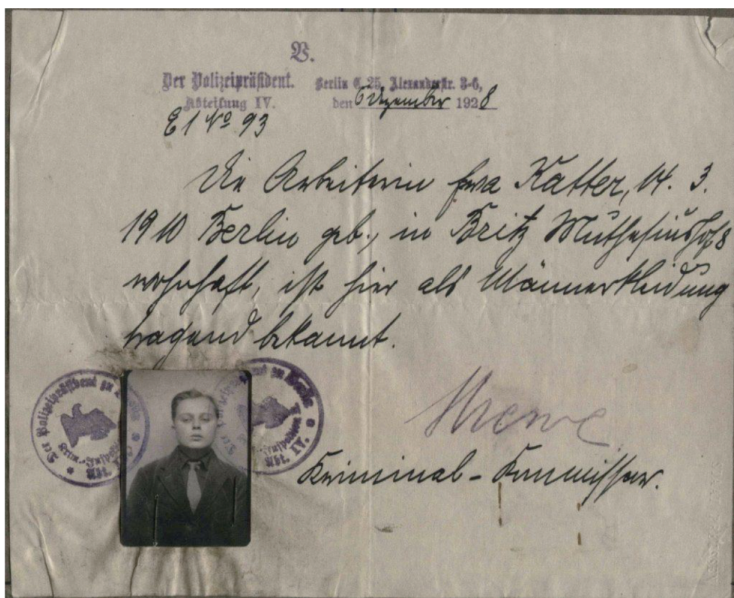 V.
Der Polizeipräsident. Berlin C. 25, Alexanderstr. 3-6,
Abteilung IV. den 6 Dezember 1928
E1 No 93
Die Arbeiterin Eva Katter, 14. 3.
1910 Berlin geb., in Britz Muthesiushof 8
wohnhaft, ist hier als Männerkleidung
tragend bekannt.
Der Polizeipräsident zu Berlin
Abt. IV.
Kriminal-Kommissar.